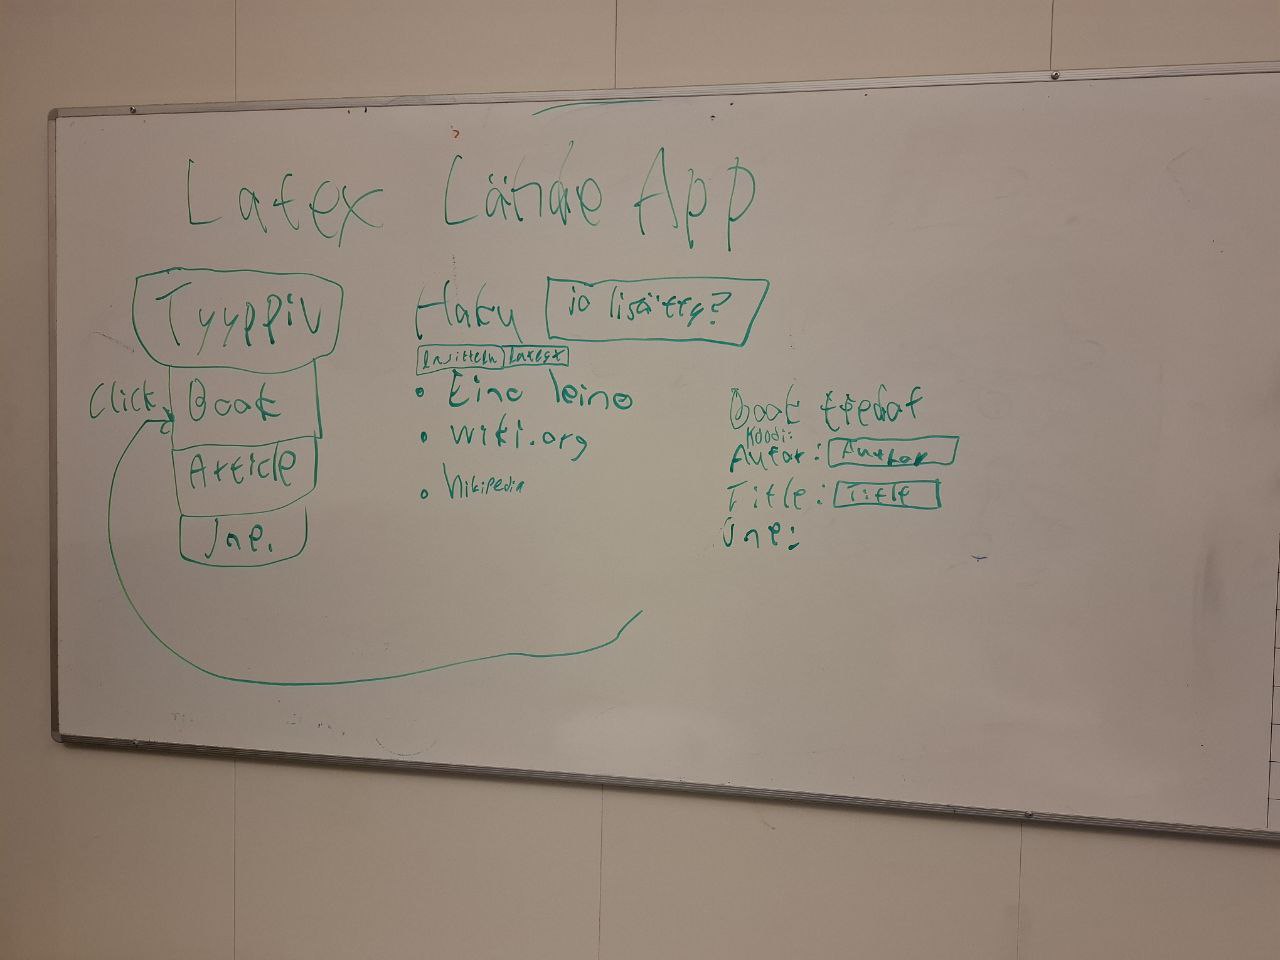 Latex Lähde App
Tyyppiv
Click
Book
Article
Jne.
Haku
jo lisätty?
Latex
• Eino leino
• wiki.org
• Wikipedia
Book tiedot
Koodi:
Autor: Autor
Title: Title
Jne: